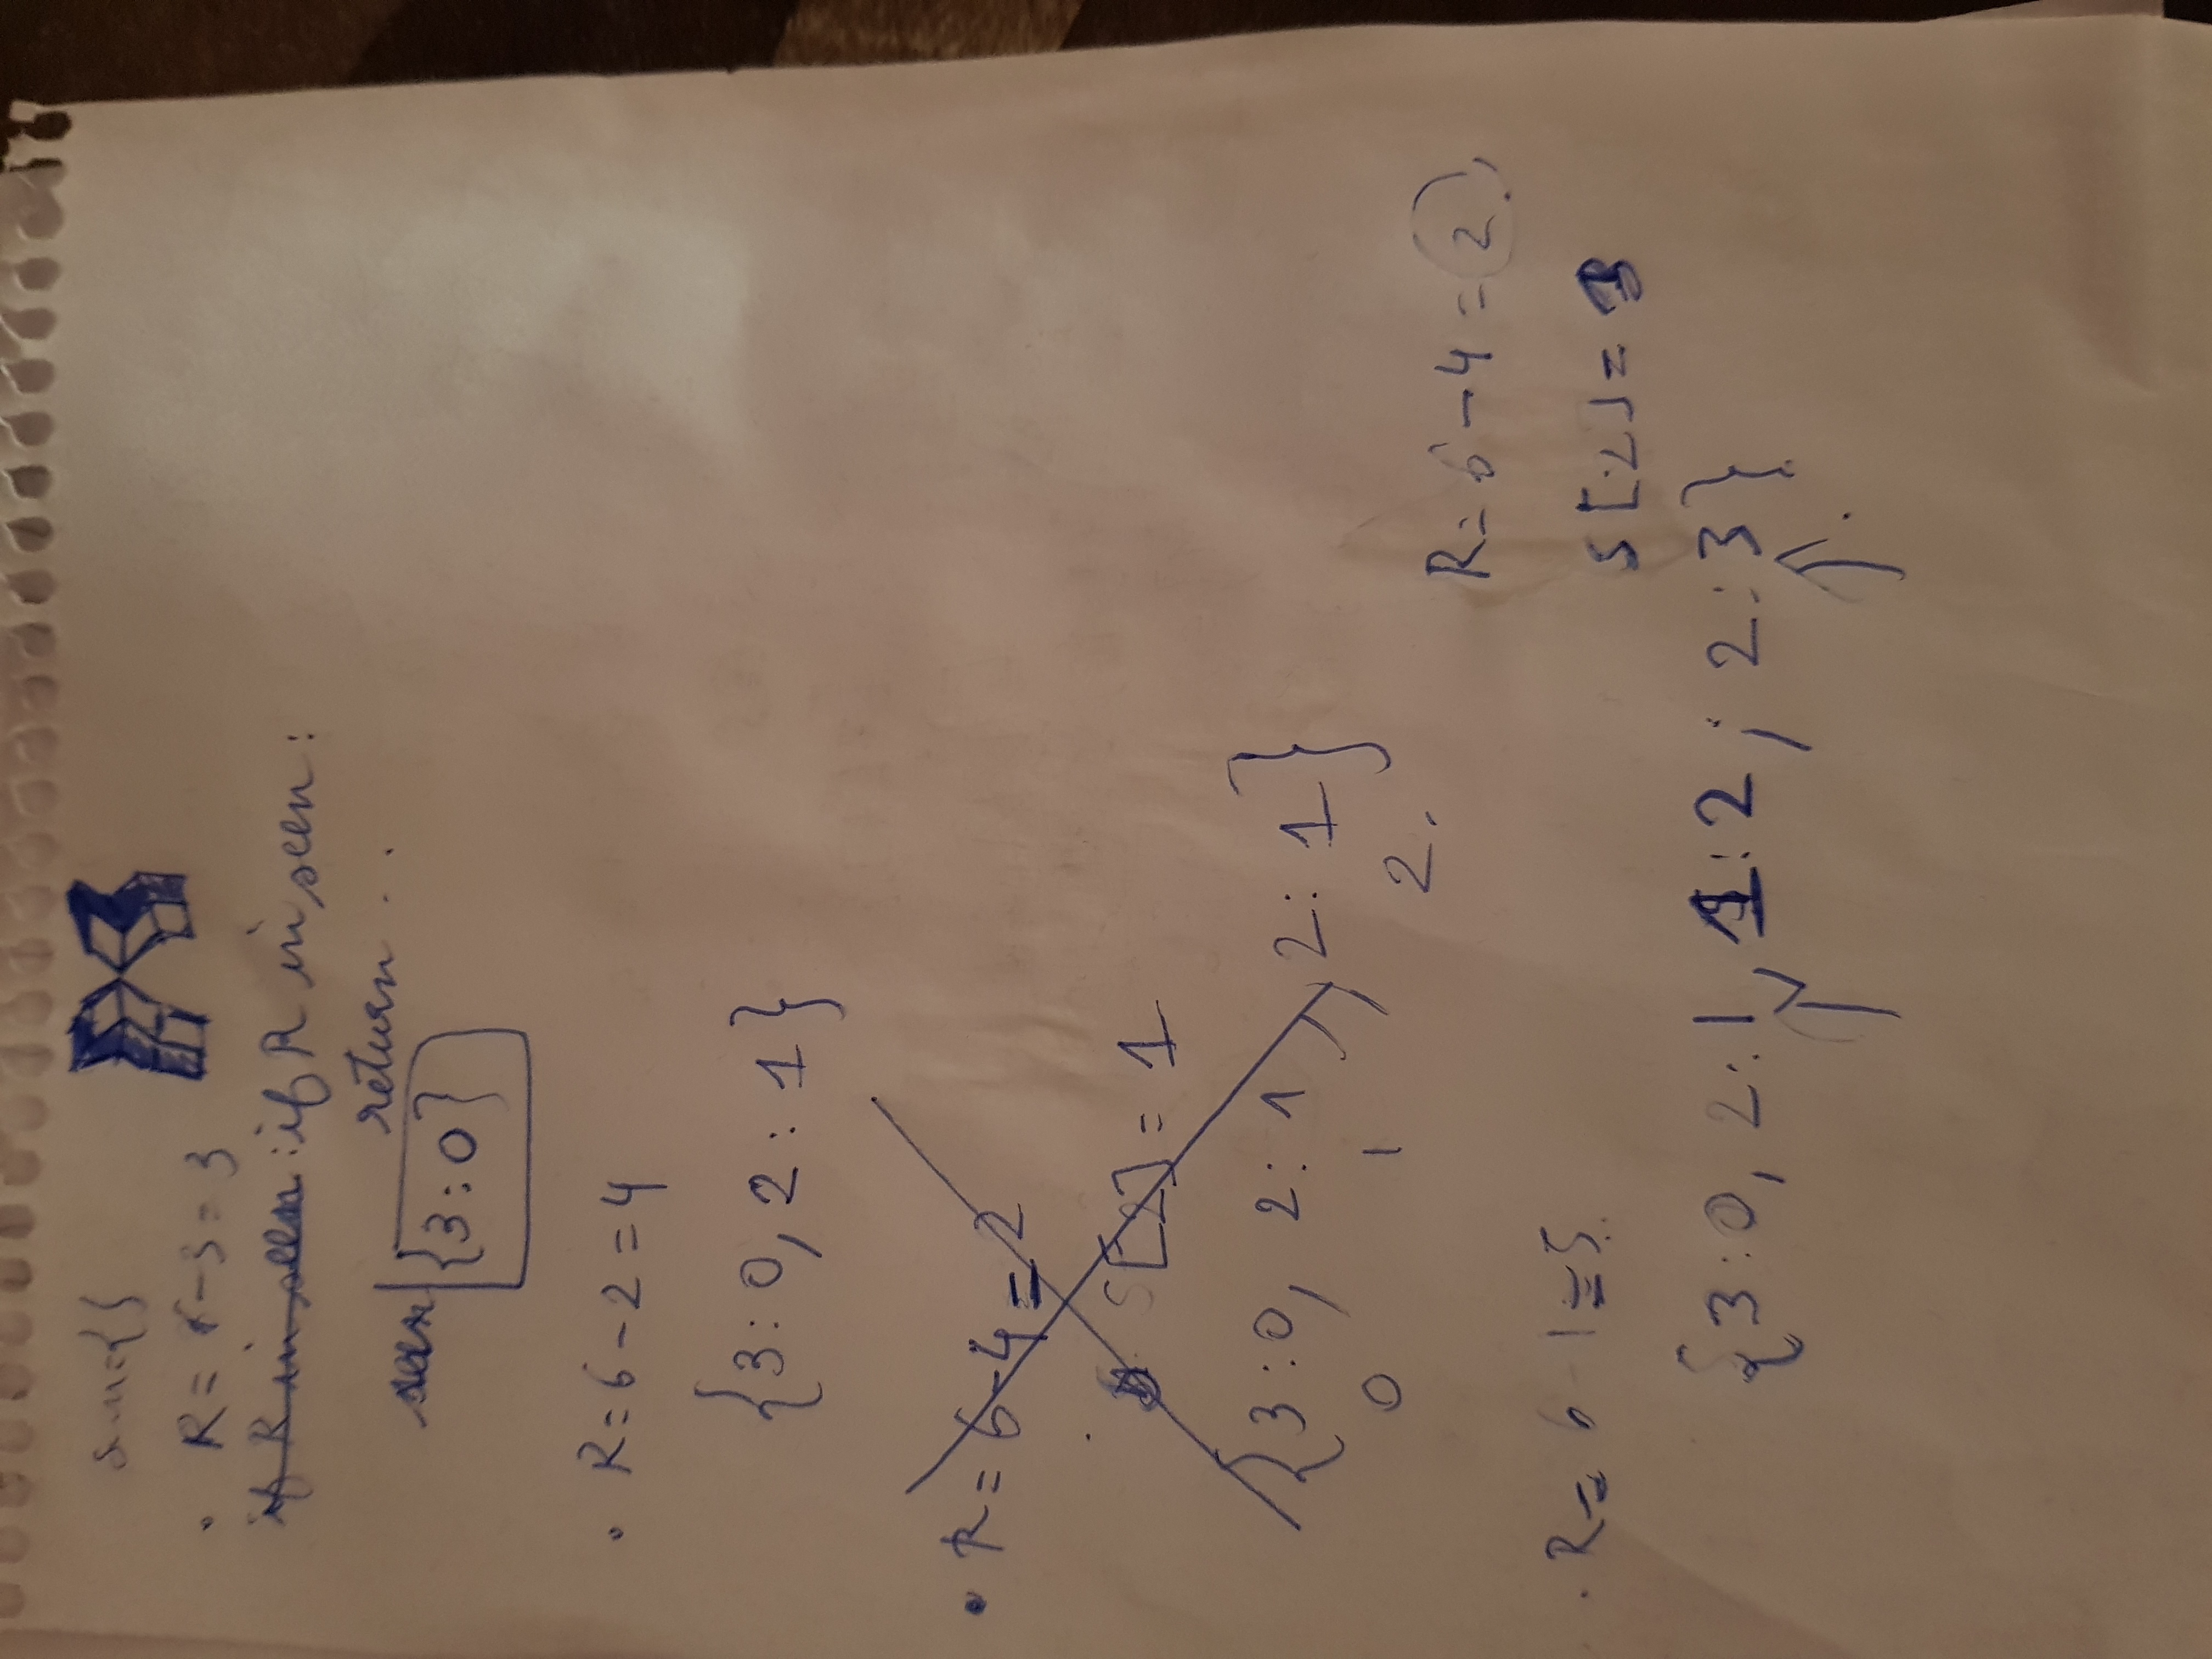 R = 6-3 = 3
if R in seen : if R in seen :
return . .
seen {3:0}
R = 6 - 2 = 4
{3: 0, 2: 1}
R = 6-4 = 2
S[2] = 1
{3:0, 2: 1, 2: 1}
0 1 2.
R = 6 - 4 = 2
R = 6 - 1 = 5
S [2] =
{3:0, 2:1, 1:2, 2:3}